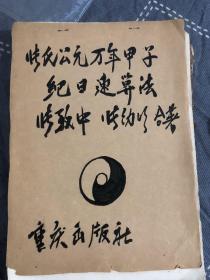 张氏公元万年甲子
纪日速算法
张致中 张幼明 合著
重庆出版社